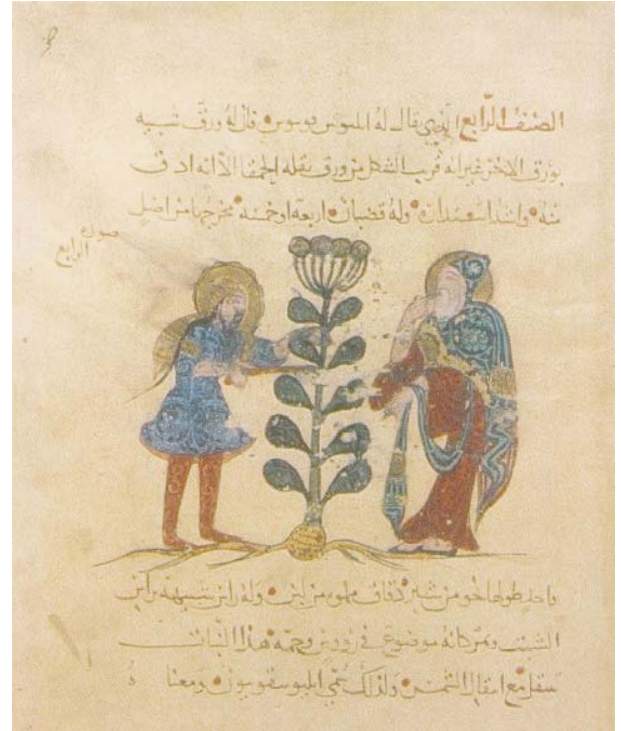 الصنف الرابع الذي يقال له اليوس قوسيوس فان له ورق شبيه
بورق الاخر غير انه قريب الشكل من ورق بقلة الحمقا الا انه ادق
منه واشد استدارة وله قضبان اربعة او خمسة مخرجها من اصل
صورة الرابع
واحد طولها نحو من شبر دقاق مملوه من لبن وله راس شبيه براس
الشبت وثمر كانه موضوع في رووس وجمة هذا النبات
تنتقل مع انتقال الشمس ولذلك سمي اليوسقوسيوس ومعناه